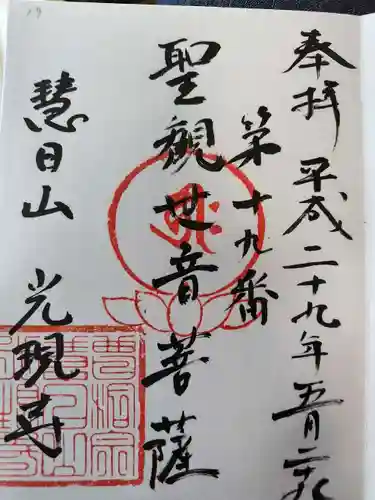 奉拝 平成二十九年五月二十
第十九番
聖観世音菩薩
慧日山 光現寺
19